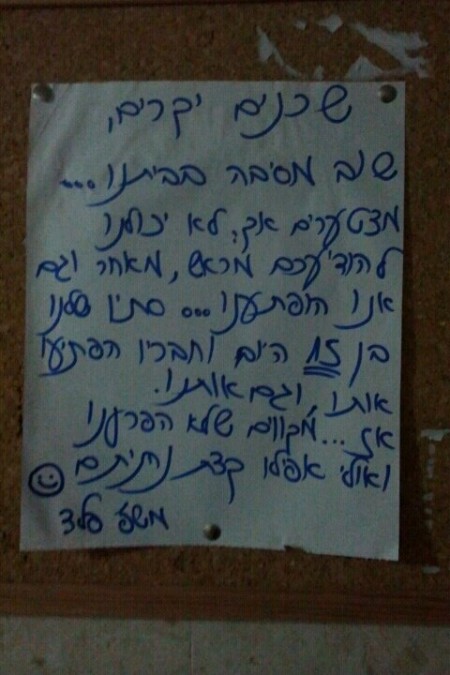 שכנים יקרים,
שוב מסיבה בביתנו...
מצטערים אך, לא יכולנו
להודיעכם מראש, מאחר וגם
אנו הופתענו... סתיו שלנו
בן 15 היום וחבריו הפתיעו
אותו, וגם אותנו.
אז... מקווים שלא הפרענו
ואולי אפילו קצת נהניתם
משפ' פלד